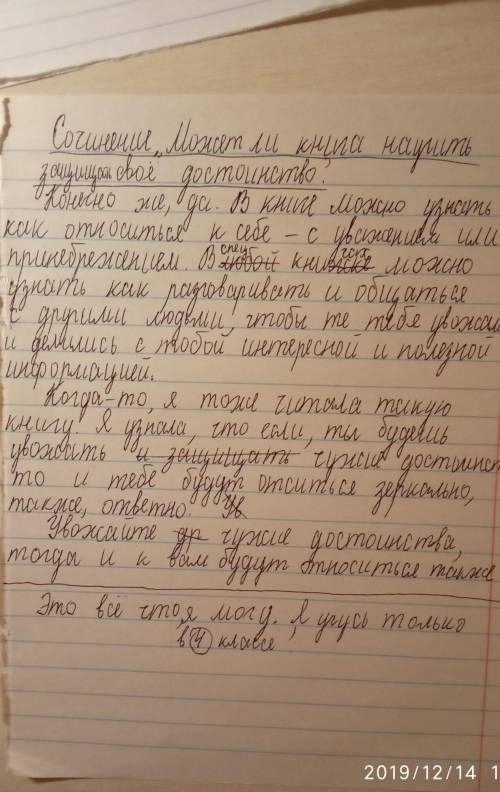 Сочинение „Может ли книга научить
защищать своё достоинство."
Конечно же, да. В книге можно узнать
как относиться к себе – с уважением или
принебрежением. В спец. любой книгах можно
узнать как разговаривать и общаться
с другими людьми, чтобы те тебя уважали
и делились с тобой интересной и полезной
информацией.
Когда-то, я тоже читала такую
книгу. Я узнала, что если, ты будешь
уважать и защищать чужие достоинст
то и тебе будут отситься зеркально,
также, ответно. Ув
Уважайте др чужие достоинства,
тогда и к вам будут относиться также
Это всё что я могу. Я учусь только
в 4 классе
2019/12/14 1